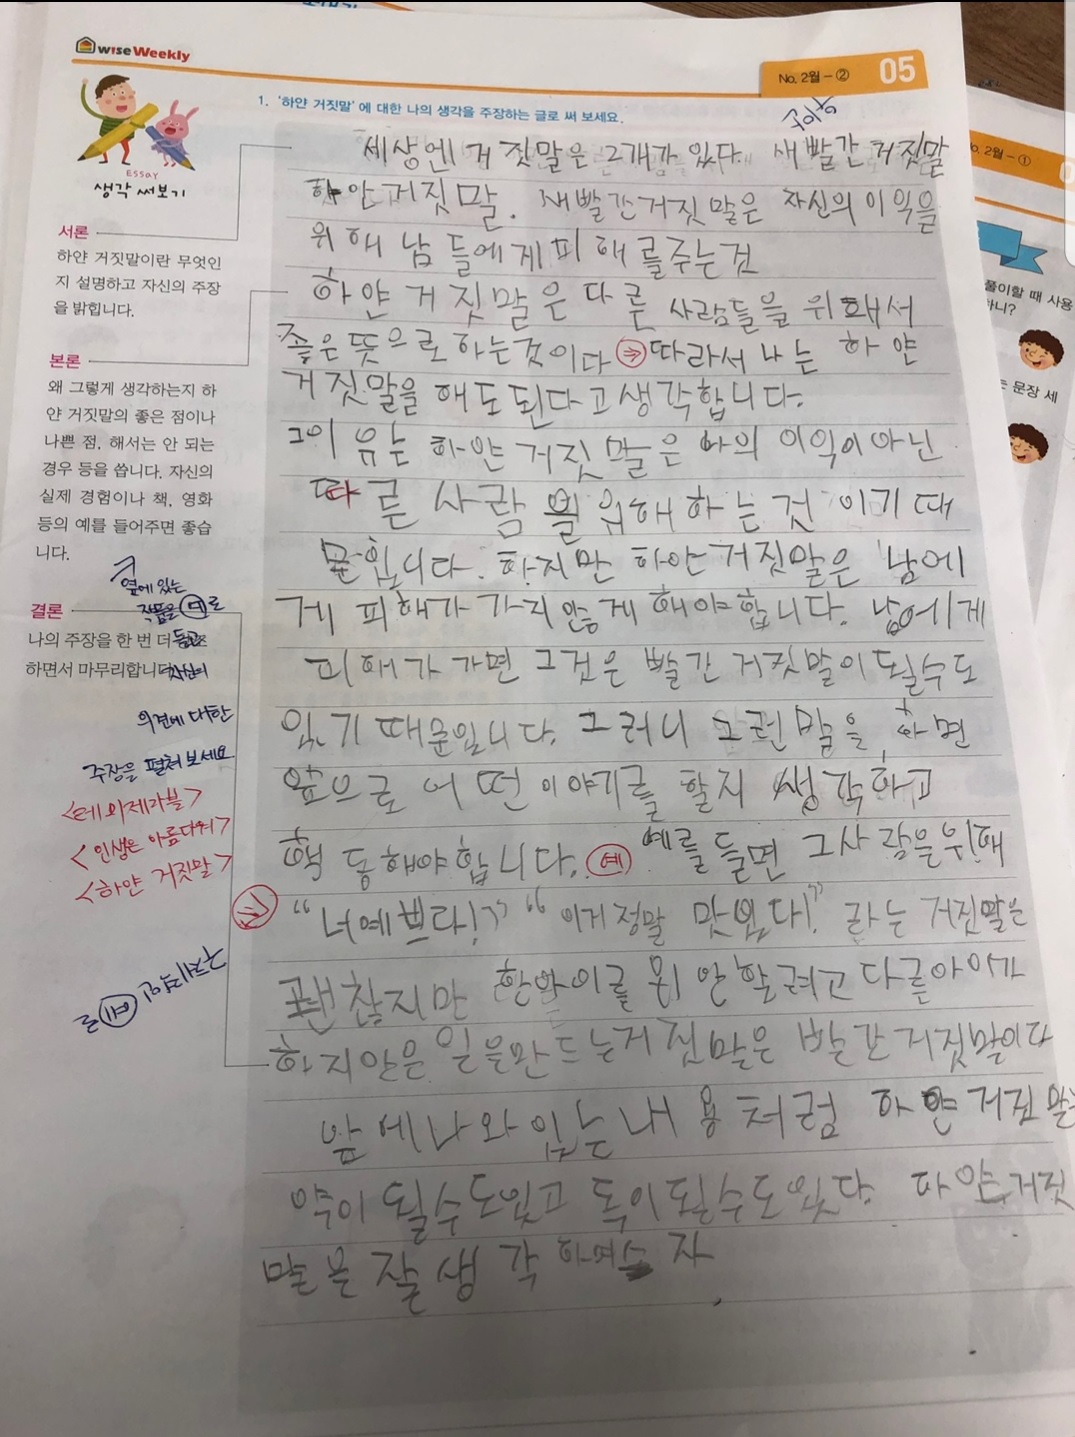 wise Weekly
No. 2월 - ② 05
1. '하얀 거짓말'에 대한 나의 생각을 주장하는 글로 써 보세요.
ESSAY
생각 써보기
서론
하얀 거짓말이란 무엇인
지 설명하고 자신의 주장
을 밝힙니다.
본론
왜 그렇게 생각하는지 하
얀 거짓말의 좋은 점이나
나쁜 점, 해서는 안 되는
경우 등을 씁니다. 자신의
실제 경험이나 책, 영화
등의 예를 들어주면 좋습
니다.
옆에 있는
작품을 예로
결론
나의 주장을 한 번 더
하면서 마무리합니다
의견에 대한
주장을 펼쳐 보세요
<레 미제라블>
<인생은 아름다워>
<하얀 거짓말>
구체적인 예를
세상엔 거짓말은 2개가 있다. 새빨간 거짓말
하얀 거짓말. 새빨간 거짓말은 자신의 이익을
위해 남들에게 피해를 주는 것
하얀 거짓말은 다른 사람들을 위해서
좋은 뜻으로 하는 것이다 따라서 나는 하얀
거짓말을 해도 된다고 생각합니다.
그 이유는 하얀 거짓말은 나의 이익이 아닌
다른 사람을 위해 하는 것 이기 때
문입니다. 하지만 하얀 거짓말은 남에
게 피해가 가지 않게 해야 합니다. 남에게
피해가 가면 그것은 빨간 거짓말이 될수도
있기 때문입니다. 그러니 그런 말을 하면
앞으로 어떤 이야기를 할지 생각하고
행동해야 합니다. 예 예를 들면 그 사람을 위해
"너 예쁘다!" "이거 정말 맛있다!" 라는 거짓말은
괜찮지만 한 아이를 위 안할려고 다른 아이가
하지 않은 일을 만드는 거짓말은 빨간 거짓말이다
앞에 나와 있는 내용 처럼 하얀 거짓말은
약이 될수도 있고 독이 될수도 있다. 하얀 거짓
말을 잘 생각 하며 자
No. 2월 - ①
풀이할 때 사용
하니?
는 문장 세